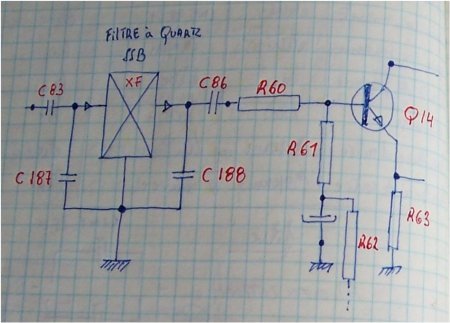 FILTRE à QUARTZ
SSB
C83
XF
C86
R60
Q14
R61
C187
C188
R62
R63